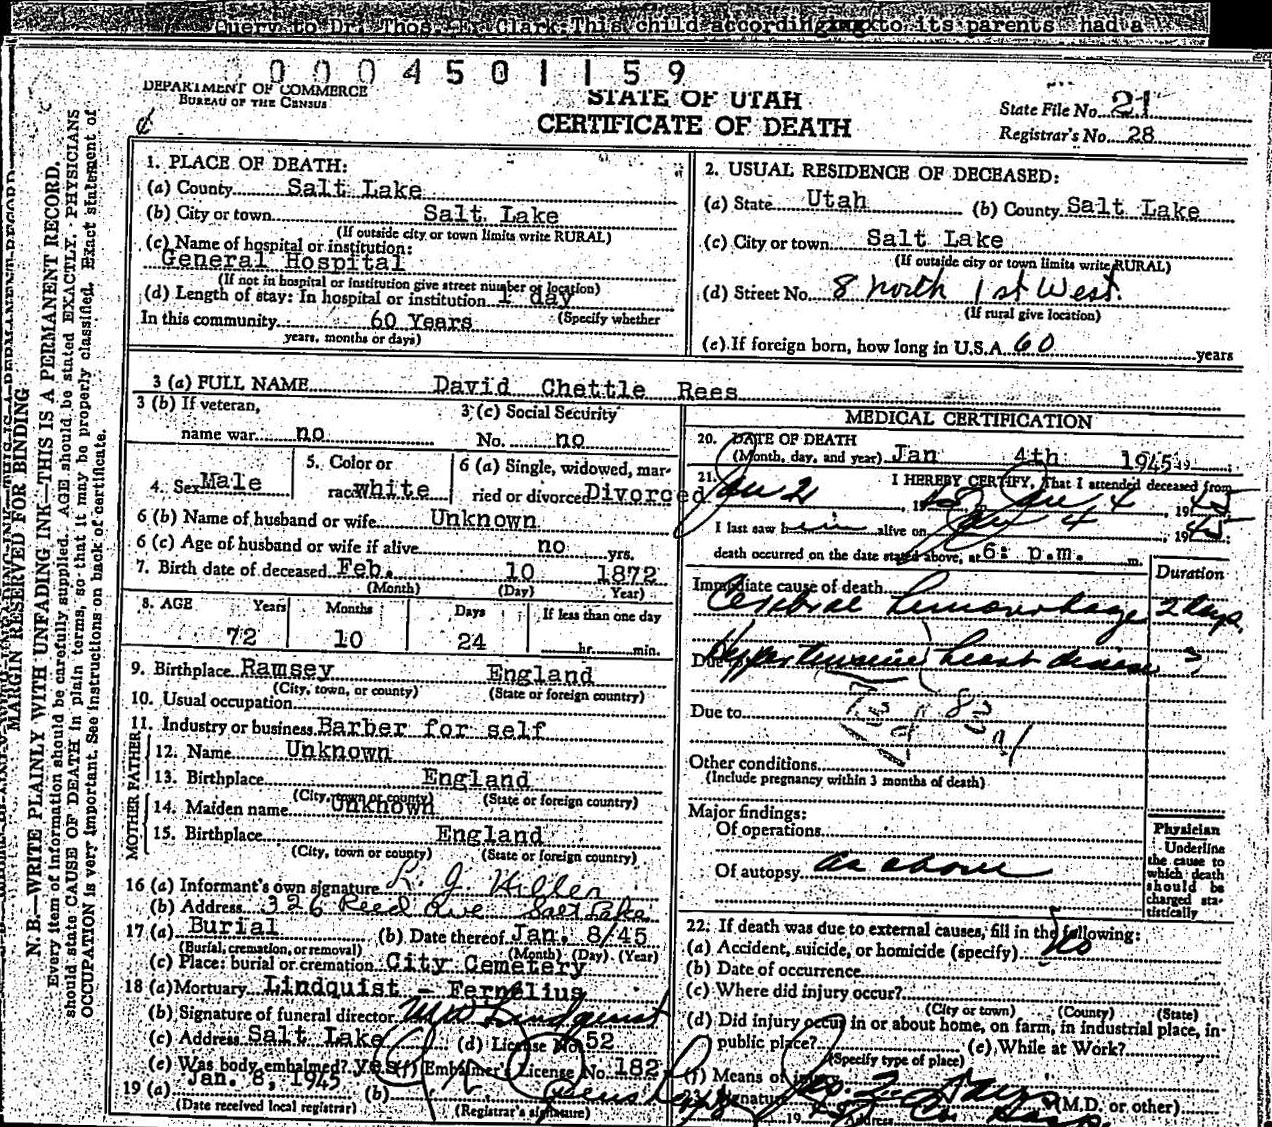 Query to Dr. Thos. Clark: This child according to its parents had a
0 0 0 4 5 0 1 1 5 9
DEPARTMENT OF COMMERCE
BUREAU OF THE CENSUS
STATE OF UTAH
CERTIFICATE OF DEATH
State File No. 21
Registrar's No. 28
MARGIN RESERVED FOR BINDING
N. B.—WRITE PLAINLY WITH UNFADING INK—THIS IS A PERMANENT RECORD.
Every item of information should be carefully supplied. AGE should be stated EXACTLY. PHYSICIANS
should state CAUSE OF DEATH in plain terms, so that it may be properly classified. Exact statement of
OCCUPATION is very important. See instructions on back of certificate.
1. PLACE OF DEATH:
(a) County Salt Lake
(b) City or town Salt Lake
(If outside city or town limits write RURAL)
(c) Name of hospital or institution:
General Hospital
(If not in hospital or institution give street number or location)
(d) Length of stay: In hospital or institution 1 day
(Specify whether
In this community 60 Years
years, months or days)
2. USUAL RESIDENCE OF DECEASED:
(a) State Utah (b) County Salt Lake
(c) City or town Salt Lake
(If outside city or town limits write RURAL)
(d) Street No. 8 North 1st West.
(If rural give location)
(e) If foreign born, how long in U.S.A. 60 years
3 (a) FULL NAME David Chettle Rees
3 (b) If veteran,
name war no
3 (c) Social Security
No. no
4. Sex Male
5. Color or
race white
6 (a) Single, widowed, mar-
ried or divorced Divorced
6 (b) Name of husband or wife Unknown
6 (c) Age of husband or wife if alive no yrs.
7. Birth date of deceased Feb. 10 1872
(Month) (Day) Year)
8. AGE Years Months Days If less than one day
72 10 24 hr. min.
9. Birthplace Ramsey England
(City, town, or county) (State or foreign country)
10. Usual occupation
11. Industry or business Barber for self
FATHER
12. Name Unknown
13. Birthplace England
(City, town or county) (State or foreign country)
MOTHER
14. Maiden name Unknown
15. Birthplace England
(City, town or county) (State or foreign country)
16 (a) Informant's own signature
(b) Address 326 Reed Ave Salt Lake
17 (a) Burial (b) Date thereof Jan. 8/45
(Burial, cremation, or removal) (Month) (Day) (Year)
(c) Place: burial or cremation City Cemetery
18 (a) Mortuary Lindquist - Fernelius
(b) Signature of funeral director Lindquist
(c) Address Salt Lake (d) License No. 52
(e) Was body embalmed? yes (f) Embalmer's License No. 182
19 (a) Jan. 8, 1945 (b)
(Date received local registrar) (Registrar's signature)
MEDICAL CERTIFICATION
20. DATE OF DEATH
(Month, day, and year) Jan 4th 1945 19
21. I HEREBY CERTIFY, That I attended deceased from
Jan 2, 19 to Jan 4, 1945
I last saw him alive on Jan 4, 1945
death occurred on the date stated above, at 6: p.m. m.
Duration
Immediate cause of death
Cerebral hemorrhage 2 days
Due to Hypertensive heart disease ?
Due to
Other conditions
(Include pregnancy within 3 months of death)
Major findings:
Of operations
Of autopsy as above
Physician
Underline
the cause to
which death
should be
charged sta-
tistically
22. If death was due to external causes, fill in the following:
(a) Accident, suicide, or homicide (specify) No
(b) Date of occurrence
(c) Where did injury occur?
(City or town) (County) (State)
(d) Did injury occur in or about home, on farm, in industrial place, in
public place? (e) While at Work?
(Specify type of place)
(f) Means of injury
23. Signature (M.D. or other)
19 Address